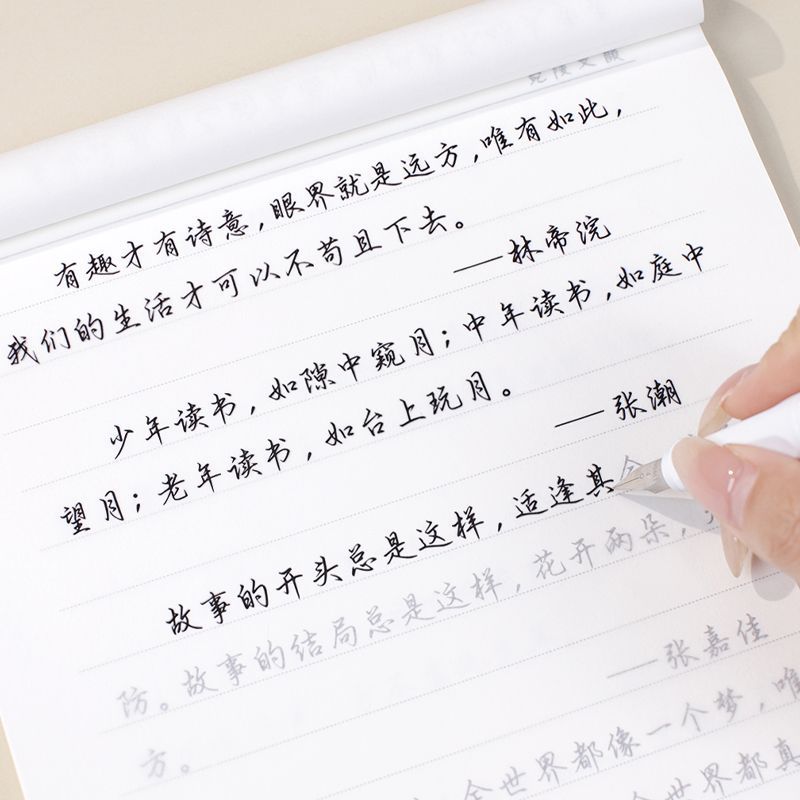 有趣才有诗意，眼界就是远方，唯有如此，
我们的生活才可以不苟且下去。
——林帝浣
少年读书，如隙中窥月；中年读书，如庭中
望月；老年读书，如台上玩月。
——张潮
故事的开头总是这样，适逢其
防。故事的结局总是这样，花开两朵，
——张嘉佳
全世界都像一个梦，唯
方。
全世界都真